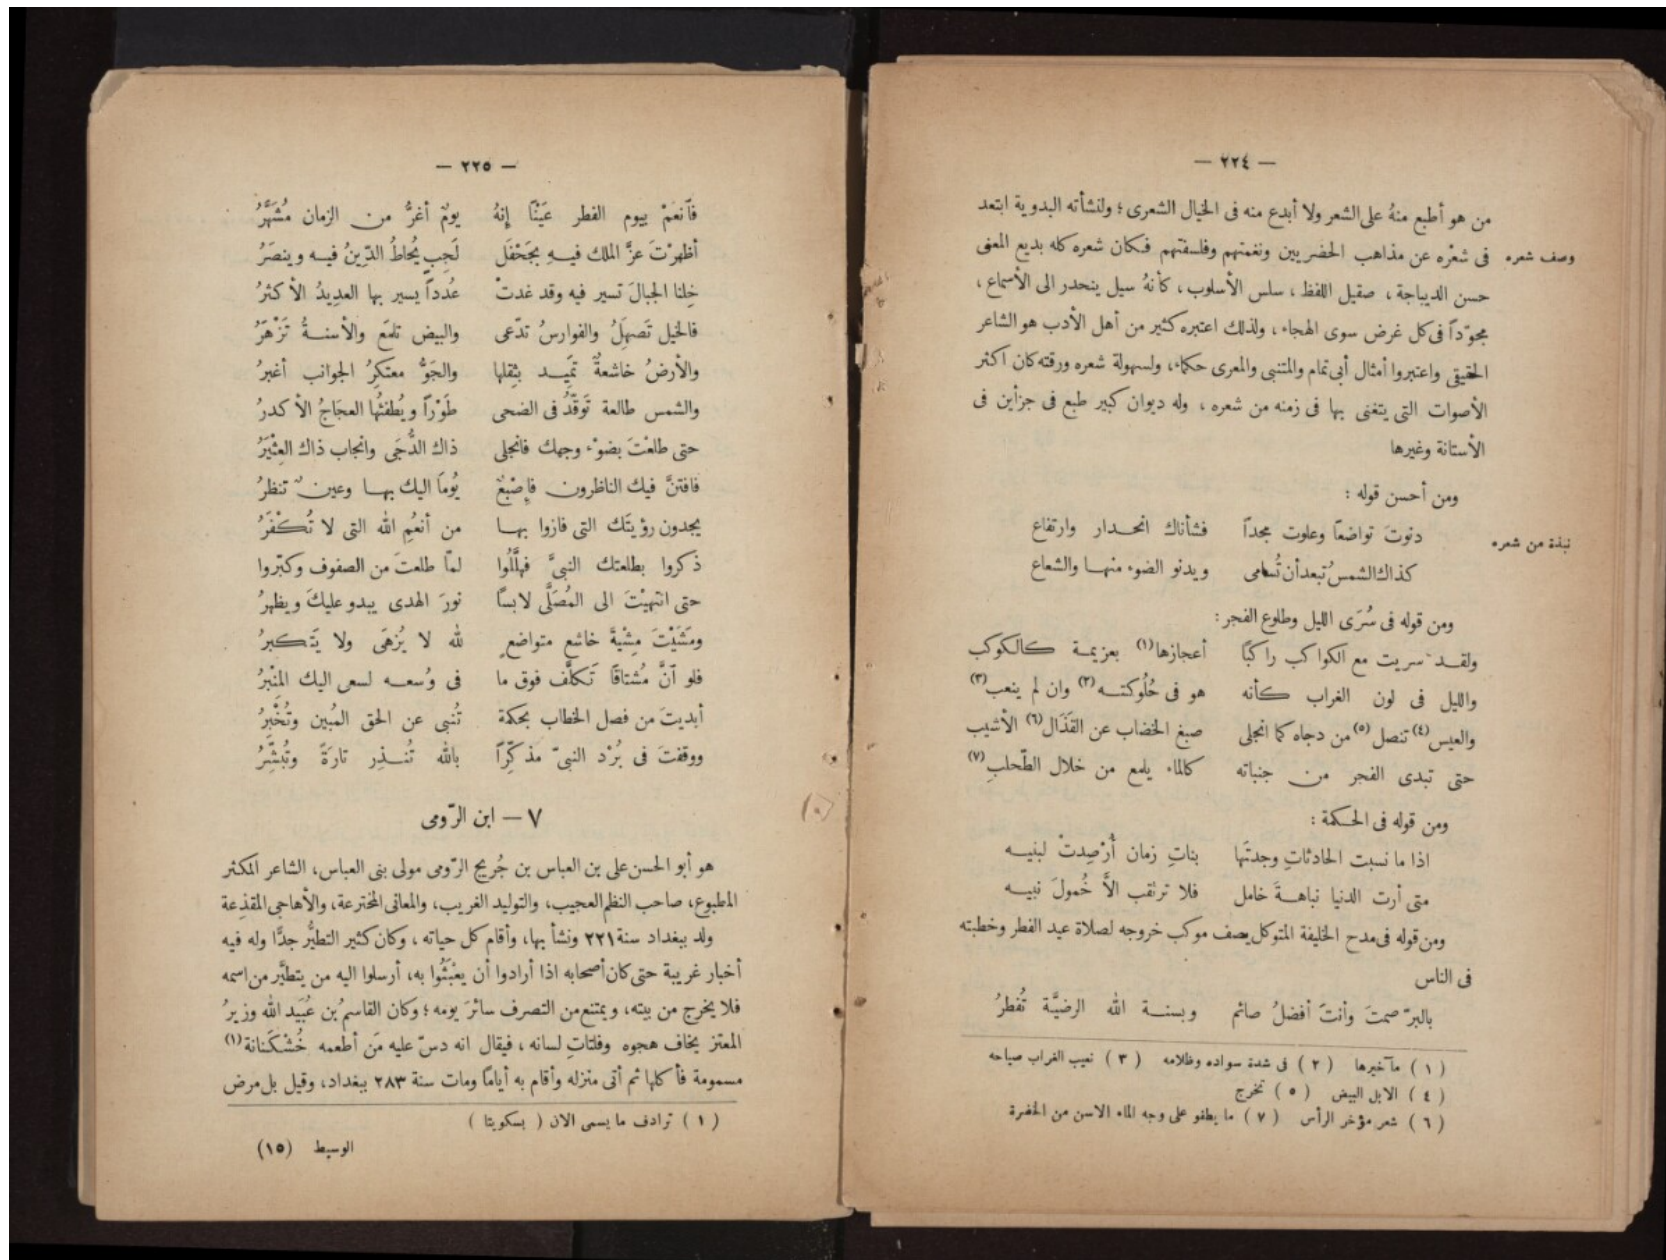 — ٢٢٤ —
من هو أطبع منهُ على الشعر ولا أبدع منه فى الخيال الشعرى؛ ولنشأته البدوية ابتعد
وصف شعره
فى شعْره عن مذاهب الحضريين ونغمتهم وفلسفتهم فكان شعره كله بديع المعنى
حسن الديباجة ، صقيل اللفظ ، سلس الأسلوب ، كأنهُ سيل ينحدر الى الأسماع ،
مجوّداً فى كل غرض سوى الهجاء ، ولذلك اعتبره كثير من أهل الأدب هو الشاعر
الحقيقى واعتبروا أمثال أبى تمام والمتنبى والمعرى حكماء، ولسهولة شعره ورقته كان أكثر
الأصوات التى يتغنى بها فى زمنه من شعره ، وله ديوان كبير طبع فى جزأين فى
الأستانة وغيرها
ومن أحسن قوله :
نبذة من شعره
دنوتَ تواضعاً وعلوت مجداً فشأناك انحدار وارتفاع
كذاك الشمسُ تبعد أن تُسامى ويدنو الضوء منها والشعاع
ومن قوله فى سُرَى الليل وطلوع الفجر :
ولقد سريت مع الكواكب راكبًا أعجازها (١) بعزيمة كالكوكب
والليل فى لون الغراب كأنه هو فى حُلُوكته (٢) وان لم ينعب (٣)
والعيس (٤) تنصل (٥) من دجاه كما انجلى صبغ الخضاب عن القَذَال (٦) الأشيب
حتى تبدى الفجر من جنباته كالماء يلمع من خلال الطّحلبِ (٧)
ومن قوله فى الحكمة :
اذا ما نسبت الحادثاتِ وجدتَها بناتِ زمان أُرْصِدتْ لبنيه
متى أرت الدنيا نباهةَ خامل فلا ترتقب الاَّ خُمولَ نبيه
ومن قوله فى مدح الخليفة المتوكل يصف موكب خروجه لصلاة عيد الفطر وخطبته
فى الناس
بالبرّ صمتَ وأنتَ أفضلُ صائم وبسنة الله الرضيَّة تُفطرُ
( ١ ) مآخيرها ( ٢ ) فى شدة سواده وظلامه ( ٣ ) نعيب الغراب صياحه
( ٤ ) الابل البيض ( ٥ ) تخرج
( ٦ ) شعر مؤخر الرأس ( ٧ ) ما يطفو على وجه الماء الاسن من الخضرة
— ٢٢٥ —
فآنعمْ بيوم الفطر عَيْنًا إنهُ يومٌ أغرُّ من الزمان مُشَهَّرُ
أظهرْتَ عزَّ الملك فيهِ بجَحْفَل لَجِبٍ يُحاطُ الدّينُ فيه وينصَرُ
خِلنا الجبالَ تسير فيه وقد غدتْ عُدداً يسير بها العديدُ الأكثرُ
فالخيل تَصهِلُ والفوارسُ تدّعى والبيض تلمَع والأسنةُ تَزْهَرُ
والأرضُ خاشعةٌ تَمِيد بثِقلها والجَوُّ معتكِرُ الجوانب أغبرُ
والشمس طالعة تَوَقّدُ فى الضحى طَوْراً ويُطفئُها العجَاجُ الأكدرُ
حتى طلعْتَ بضوْء وجهك فانجلى ذاك الدُّجَى وانجاب ذاك العِثْيَرُ
فافتنَّ فيك الناظرون فإِصْبعٌ يُومَا اليك بها وعينٌ تنظرُ
يجدون رؤيتَك التى فازوا بها من أنعُم الله التى لا تُكْفَرُ
ذكروا بطلعتك النبىَّ فهلَّلُوا لمّا طلعتَ من الصفوف وكبّروا
حتى انتهيْتَ الى المُصَلَّى لابسًا نورَ الهدى يبدو عليكَ ويظهرُ
ومَشَيْتَ مِشْيةَ خاشع متواضعٍ لله لا يُزهَى ولا يَتكبرُ
فلو آنَّ مُشتاقًا تَكلَّف فوق ما فى وُسعه لسعى اليك المِنْبرُ
أبديتَ من فصل الخطاب بحكمة تُنبى عن الحق المُبين وتُخْبِرُ
ووقفتَ فى بُرْد النبىّ مذكِّراً بالله تُنذِر تارَةً وتُبشِّرُ
٧ — ابن الرّومى
هو أبو الحسن على بن العباس بن جُريج الرّومى مولى بنى العباس، الشاعر المكثر
المطبوع، صاحب النظم العجيب، والتوليد الغريب، والمعانى المخترعة، والأهاجى المقذِعة
ولد ببغداد سنة ٢٢١ ونشأ بها، وأقام كل حياته ، وكان كثير التطيُّر جدًّا وله فيه
أخبار غريبة حتى كان أصحابه اذا أرادوا أن يعْبَثُوا به، أرسلوا اليه من يتطيَّر من اسمه
فلا يخرج من بيته، ويمتنع من التصرف سائرَ يومه ؛ وكان القاسمُ بن عُبَيد الله وزيرُ
المعتز يخاف هجوه وفلتاتِ لسانه ، فيقال انه دسّ عليه مَن أطعمه خُشْكَنانة (١)
مسمومة فأكلها ثم أتى منزله وأقام به أيامًا ومات سنة ٢٨٣ ببغداد، وقيل بل مرض
( ١ ) ترادف ما يسمى الان ( بسكويتا )
الوسيط (١٥)